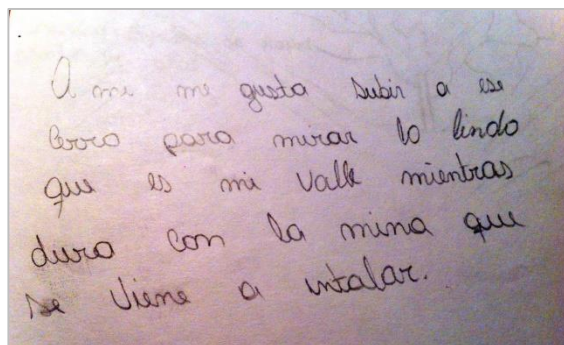 A mi me gusta subir a ese
cerro para mirar lo lindo
que es mi valle mientras
dura con la mina que
se viene a intalar.